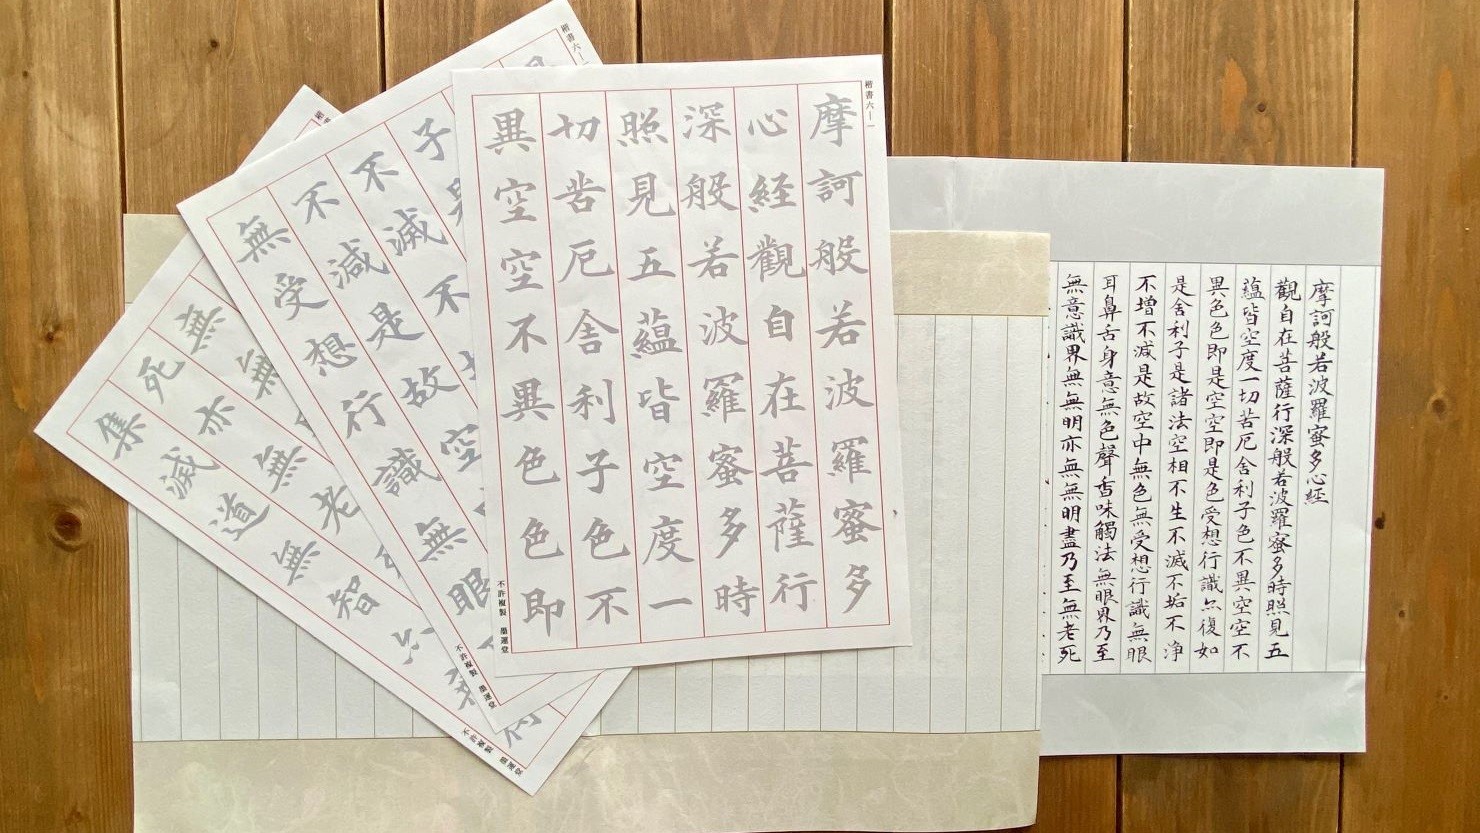 摩訶般若波羅蜜多心経
觀自在菩薩行深般若波羅蜜多時照見五
蘊皆空度一切苦厄舎利子色不異空空不
異色色即是空空即是色受想行識亦復如
是舎利子是諸法空相不生不滅不垢不浄
不増不減是故空中無色無受想行識無眼
耳鼻舌身意無色聲香味觸法無眼界乃至
無意識界無無明亦無無明盡乃至無老死
楷書六―一
摩訶般若波羅蜜多
心経觀自在菩薩行
深般若波羅蜜多時
照見五蘊皆空度一
切苦厄舎利子色不
異空空不異色色即
不許複製 墨運堂
楷書六
子是
不滅不
不減是故空
無受想行識無眼
不許複製 墨運堂
無無
死亦無老
集滅道無智亦
不許複製 墨運堂